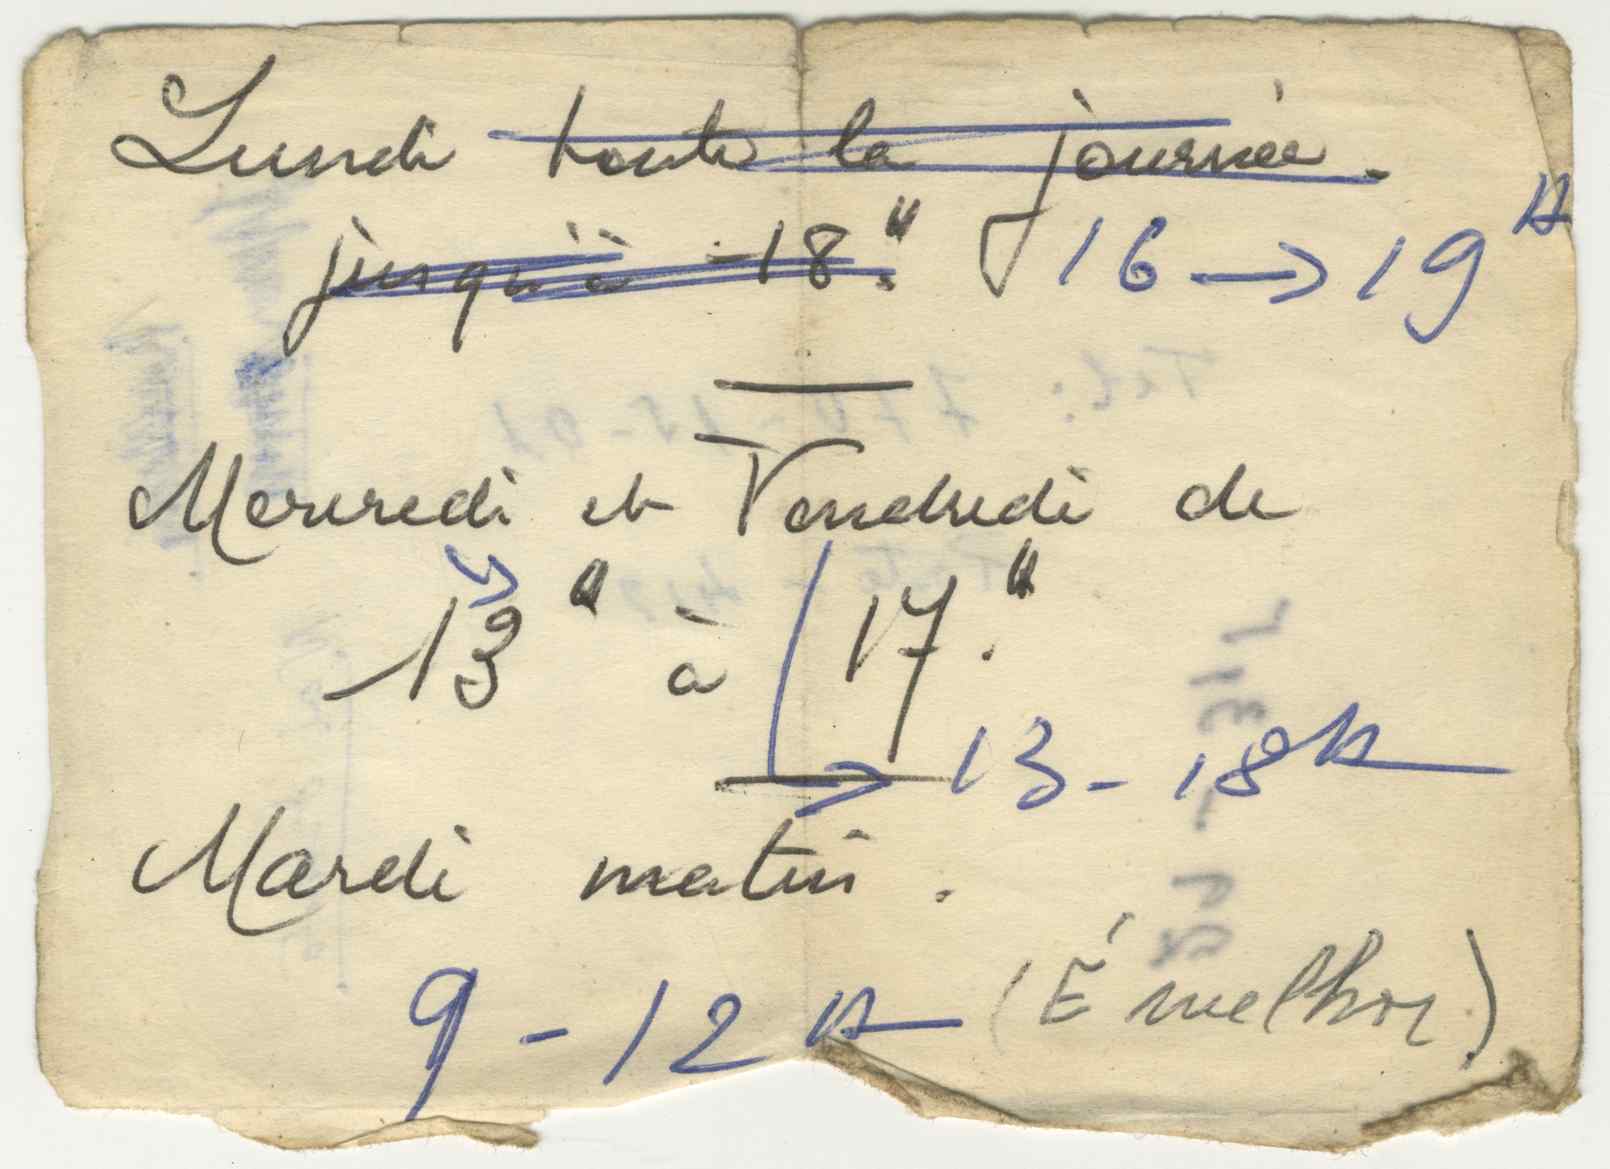 Lundi toute la journée.
jusqu'à 18h. 16 → 19h
Mercredi et Vendredi de
13h à 17h.
→ 13 - 18h
Mardi matin.
9 - 12h (É melhor)
Tel: